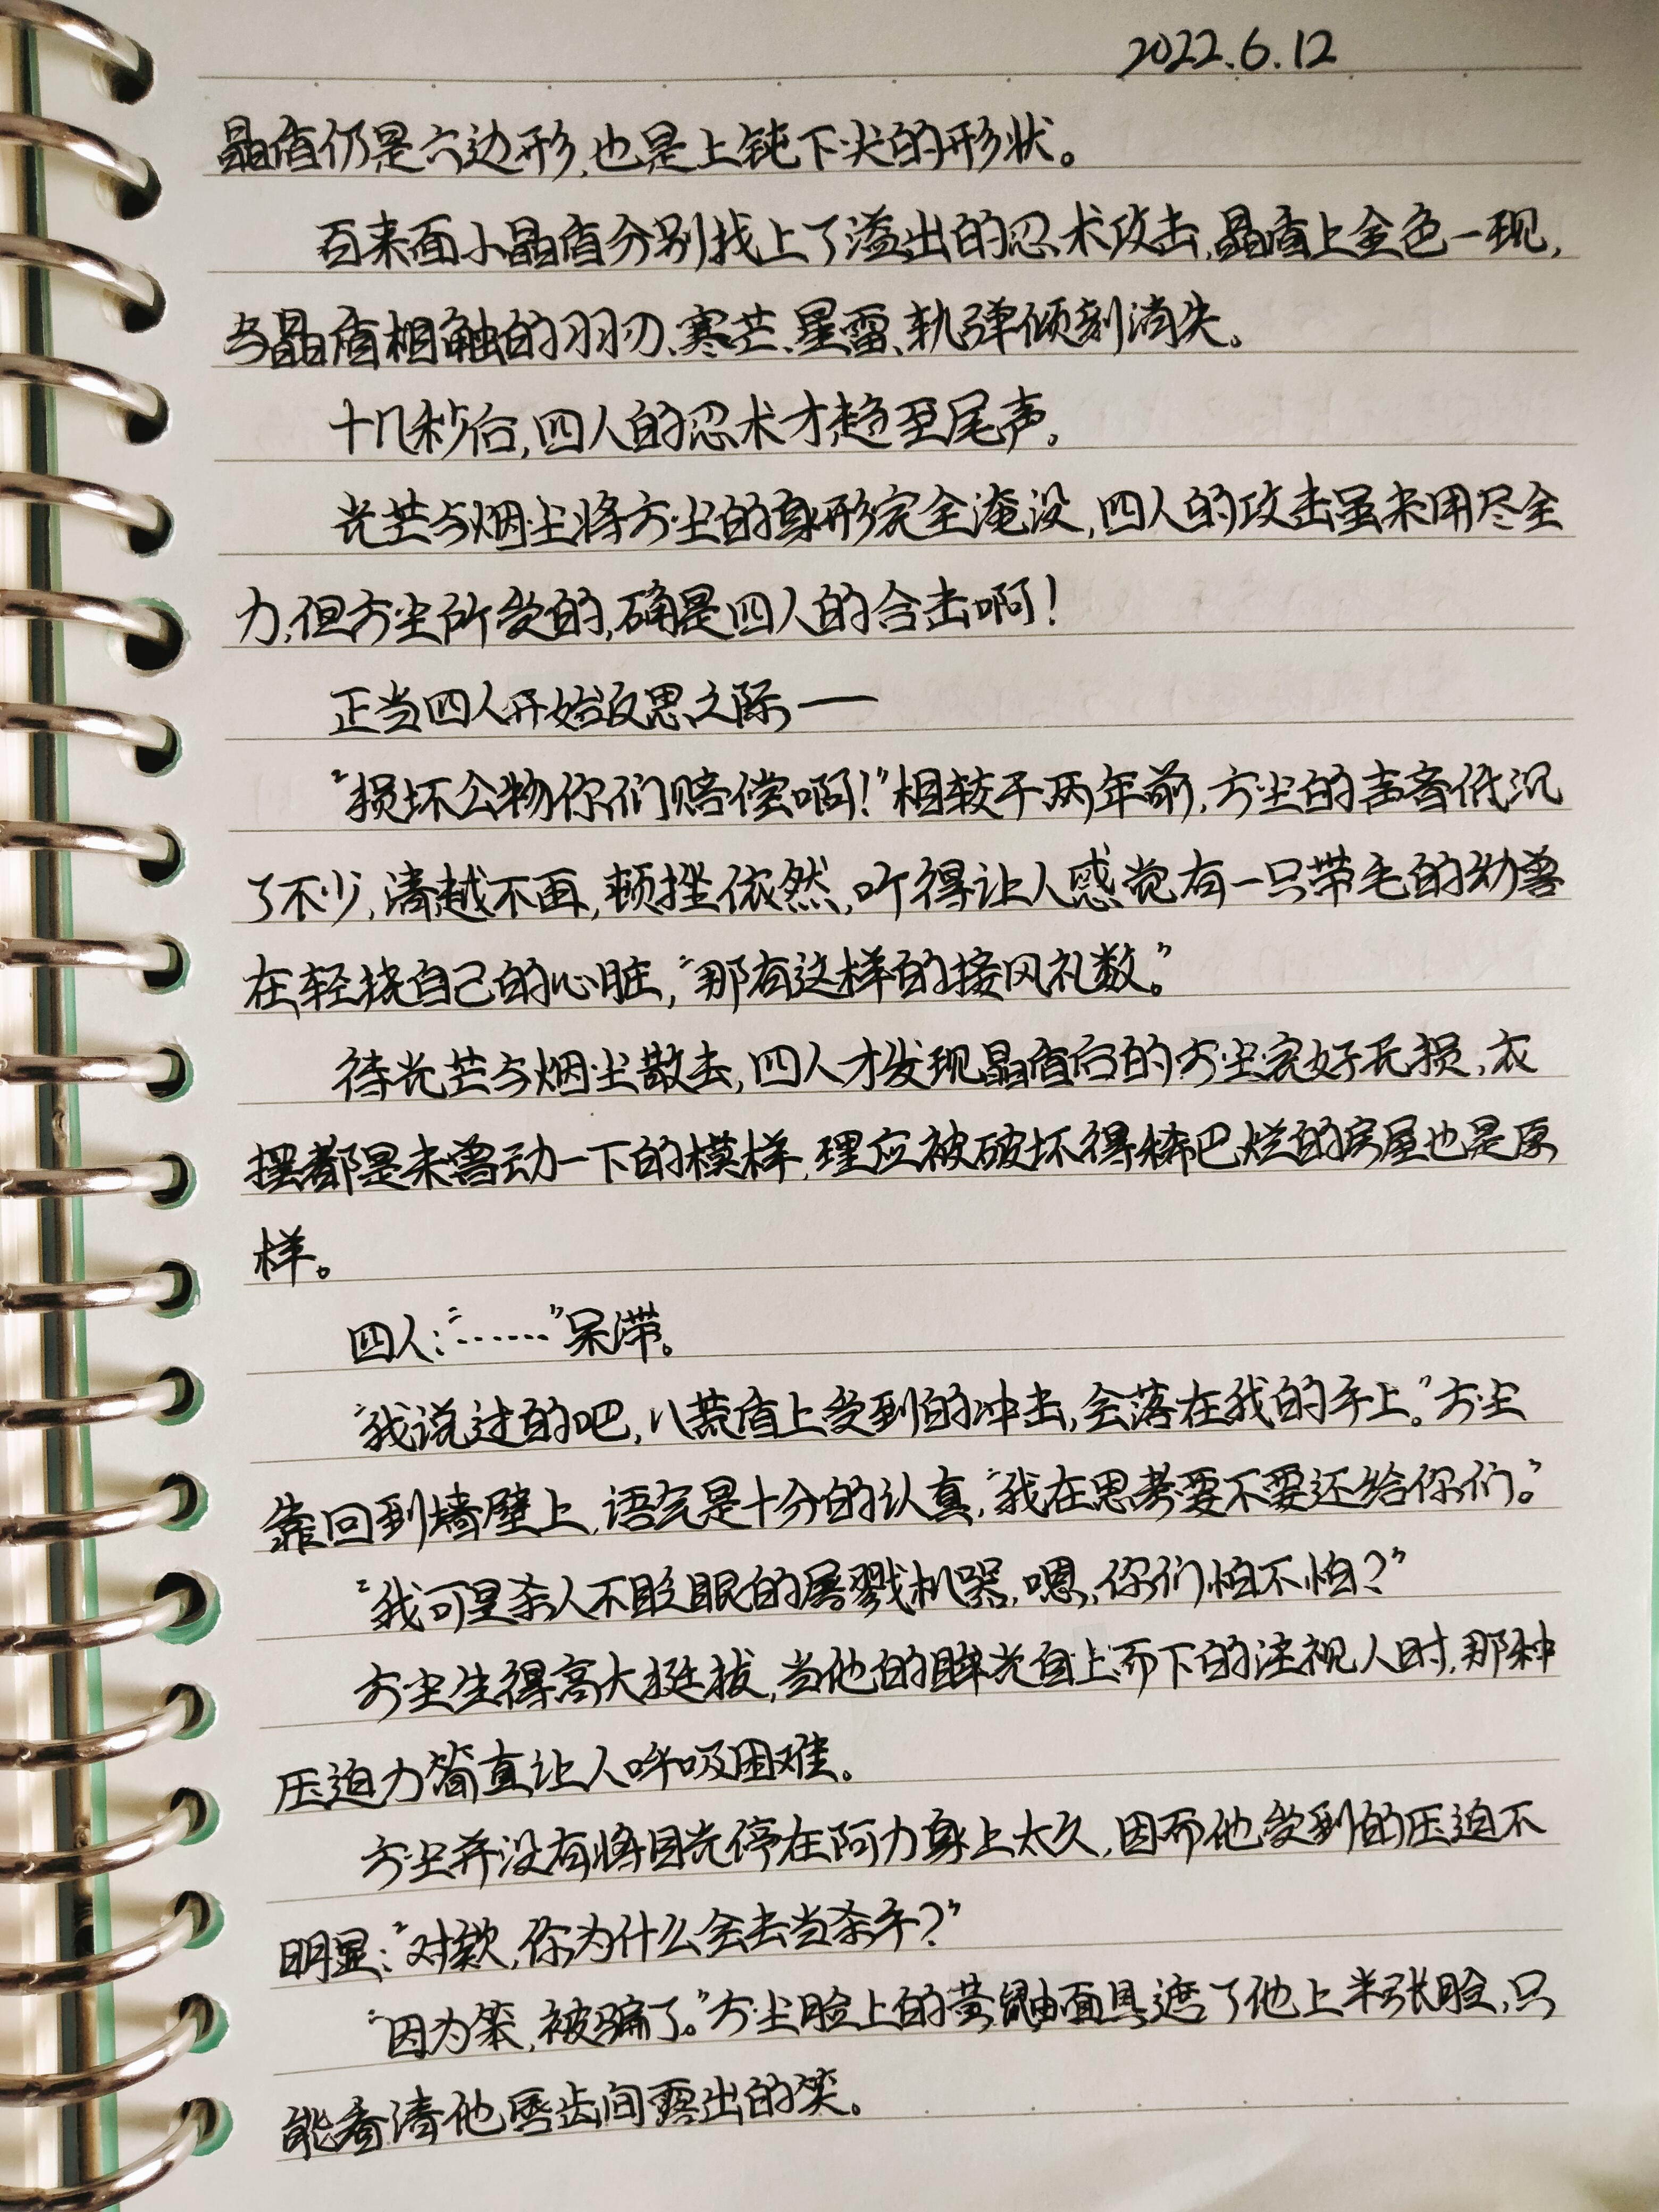 2022.6.12
晶盾仍是六边形,也是上钝下尖的形状。
百来面小晶盾分别找上了溢出的忍术攻击,晶盾上金色一现,
与晶盾相触的羽刃、寒芒、星雷、轨弹倾刻消失。
十几秒后,四人的忍术才趋至尾声。
光芒与烟尘将方尘的身形完全淹没,四人的攻击虽未用尽全
力,但方尘所受的,确是四人的合击啊!
正当四人开始反思之际——
“损坏公物你们赔偿啊!”相较于两年前,方尘的声音低沉
了不少,清越不再,顿挫依然,听得让人感觉有一只带毛的幼兽
在轻挠自己的心脏,“那有这样的接风礼数。”
待光芒与烟尘散去,四人才发现晶盾后的方尘完好无损,衣
摆都是未曾动一下的模样,理应被破坏得稀巴烂的房屋也是原
样。
四人:“……”呆滞。
“我说过的吧,八荒盾上受到的冲击,会落在我的手上。”方尘
靠回到墙壁上,语气是十分的认真,“我在思考要不要还给你们。”
“我可是杀人不眨眼的屠戮机器,嗯,你们怕不怕?”
方尘生得高大挺拔,当他的眸光自上而下的注视人时,那种
压迫力简直让人呼吸困难。
方尘并没有将目光停在阿力身上太久,因而他受到的压迫不
明显:“对款,你为什么会去当杀手?”
“因为笨,被骗了。”方尘脸上的黄鼬面具遮了他上半张脸,只
能看清他唇齿间露出的笑。